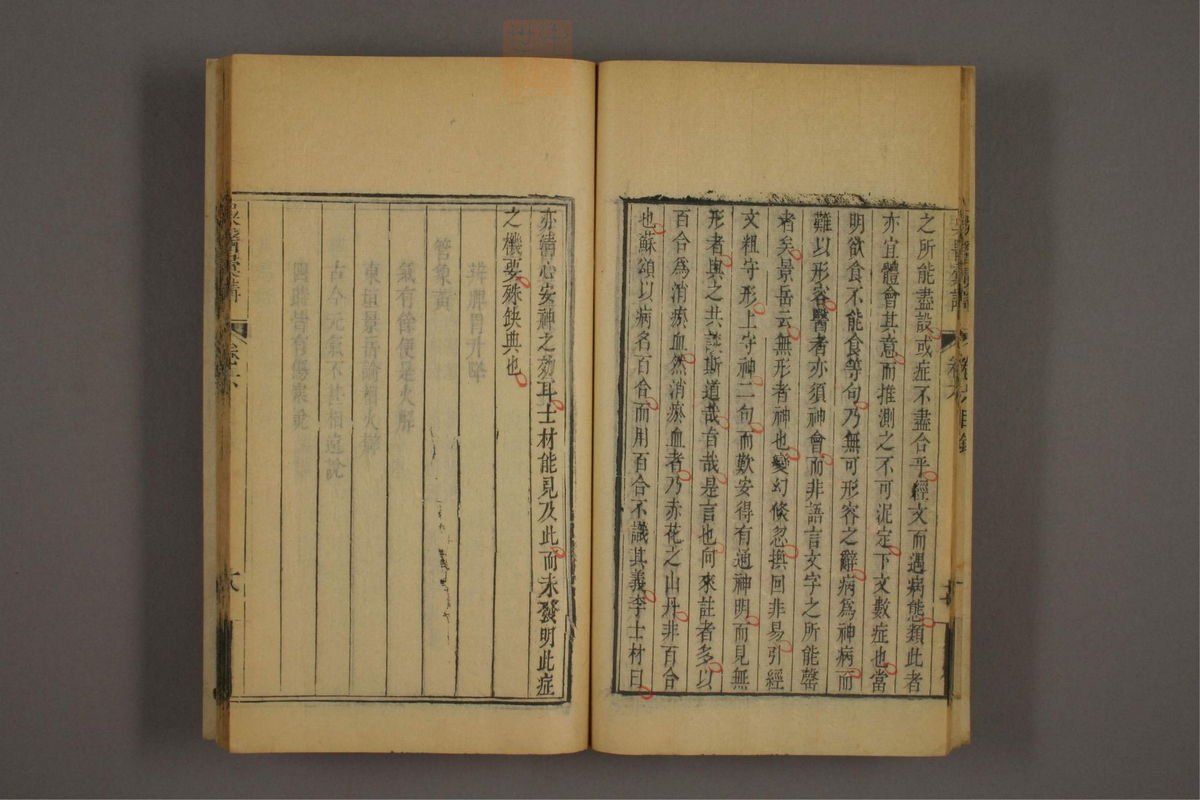 之所能盡設或症不盡合乎經文而遇病態類此者
亦宜體會其意而推測之不可泥定下文數症也當
明欲食不能食等句乃無可形容之辭病爲神病而
難以形容醫者亦須神會而非語言文字之所能罄
者矣景岳云無形者神也變幻倏忽挽回非易引經
文粗守形上守神二句而歎安得有通神明而見無
形者與之共談斯道哉旨哉是言也向來註者多以
百合爲消瘀血然消瘀血者乃赤花之山丹非百合
也蘇頌以病名百合而用百合不識其義李士材曰
亦清心安神之効耳士材能見及此而未發明此症
之機要殊缺典也
卷六